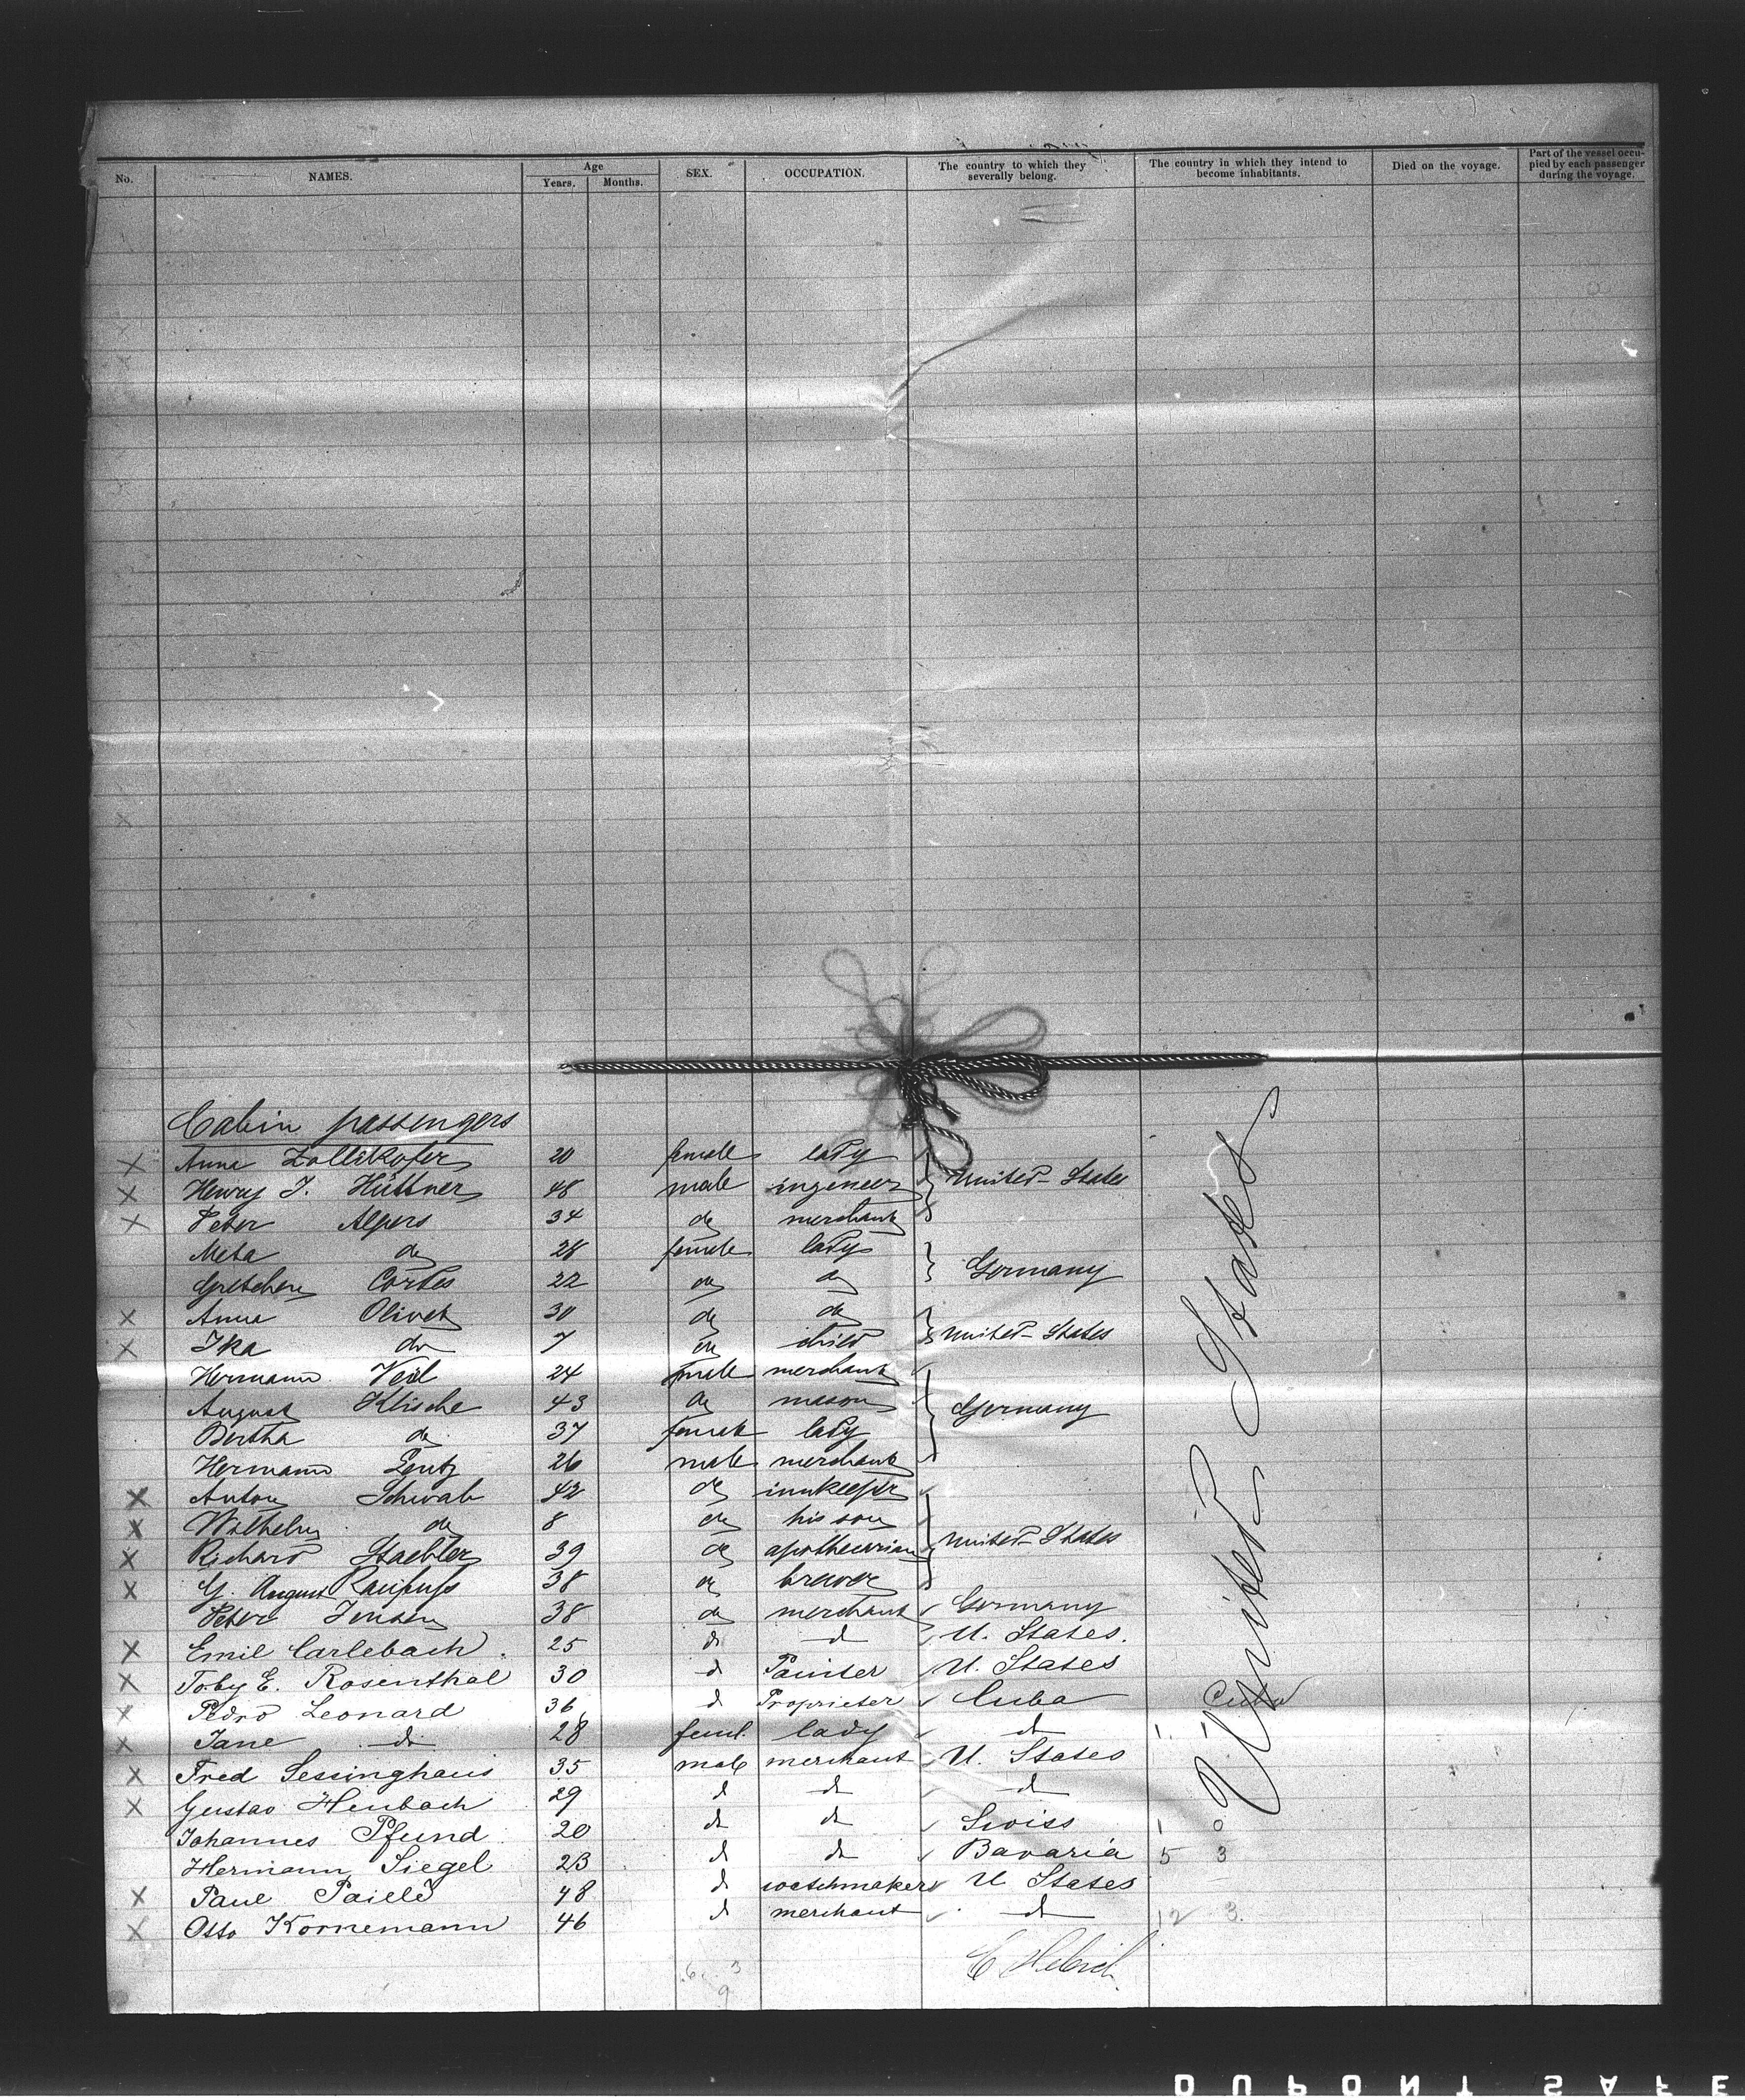 No. NAMES. Age Years. Months. SEX. OCCUPATION. The country to which they severally belong. The country in which they intend to become inhabitants. Died on the voyage. Part of the vessel occupied by each passenger during the voyage.
Cabin passengers
X Anna Zollikofer 20 female lady
X Henry J. Hüttner 48 male ingeneer United States
X Peter Alpers 34 do merchant
Meta do 28 female lady
Gretchen Cordes 22 do do Germany
X Anna Olivet 30 do do
X Ika do 7 do child United States
Hermann Veil 24 male merchant
August Klische 43 do mason Germany
Bertha do 37 female lady
Hermann Lentz 26 male merchant
X Anton Schwab 42 do innkeeper
X Wilhelm do 8 do his son
X Richard Staebler 39 do apothecarian United States
X G. August Raufuss 38 do brewer
Peter Jensen 38 do merchant Germany
X Emil Carlebach 25 do d U. States.
X Toby E. Rosenthal 30 d Painter U. States
X Pedro Leonard 36 d Proprieter Cuba Cuba
X Jane do 28 feml. lady do 1
X Fred Sessinghaus 35 male merchant U. States
X Gustav Heubach 29 d do do
Johannes Pfund 20 do do Swiss 1 0
Hermann Siegel 23 d do Bavaria 5 3
X Paul 48 d watchmaker U States
X Otto Kornemann 46 d merchant do 12 3.
United States
6. 3
9
DUPONT SAFE